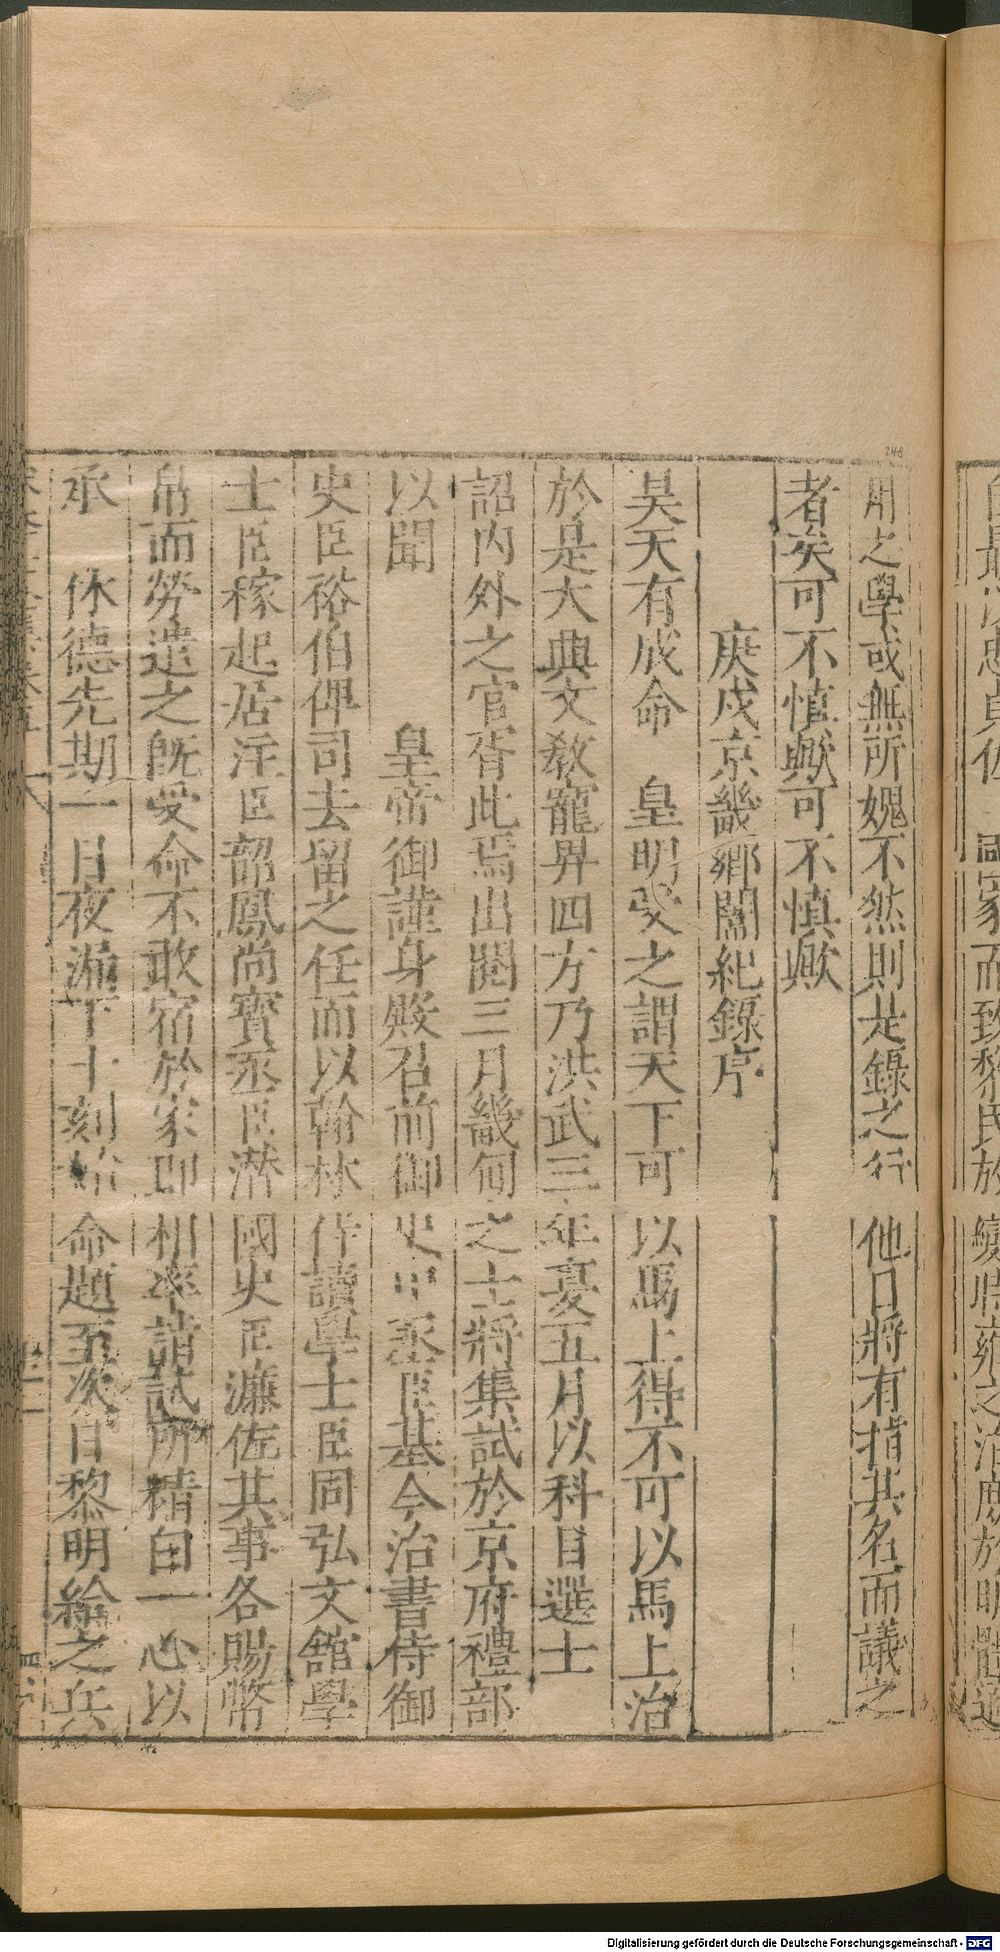 用之學或無所媿不然則是錄之行他日將有指其名而議之
者矣可不慎歟可不慎歟
庚戌京畿鄉闈紀錄序
昊天有成命 皇明受之謂天下可以馬上得不可以馬上治
於是大興文教寵畀四方乃洪武三年夏五月以科目選士
詔內外之官胥此焉出閱三月畿甸之士將集試於京府禮部
以聞 皇帝御謹身殿召前御史中丞臣基今治書侍御
史臣裕伯俾司去留之任而以翰林侍讀學士臣同弘文館學
士臣稼起居注臣韶鳳尚寶丞臣潛國史臣濂佐其事各賜幣
帛而勞遣之既受命不敢宿於家即相率詣試所精白一心以
承 休德先期一日夜漏下十刻始命題至次日黎明給之兵
248
Digitalisierung gefördert durch die Deutsche Forschungsgemeinschaft - DFG